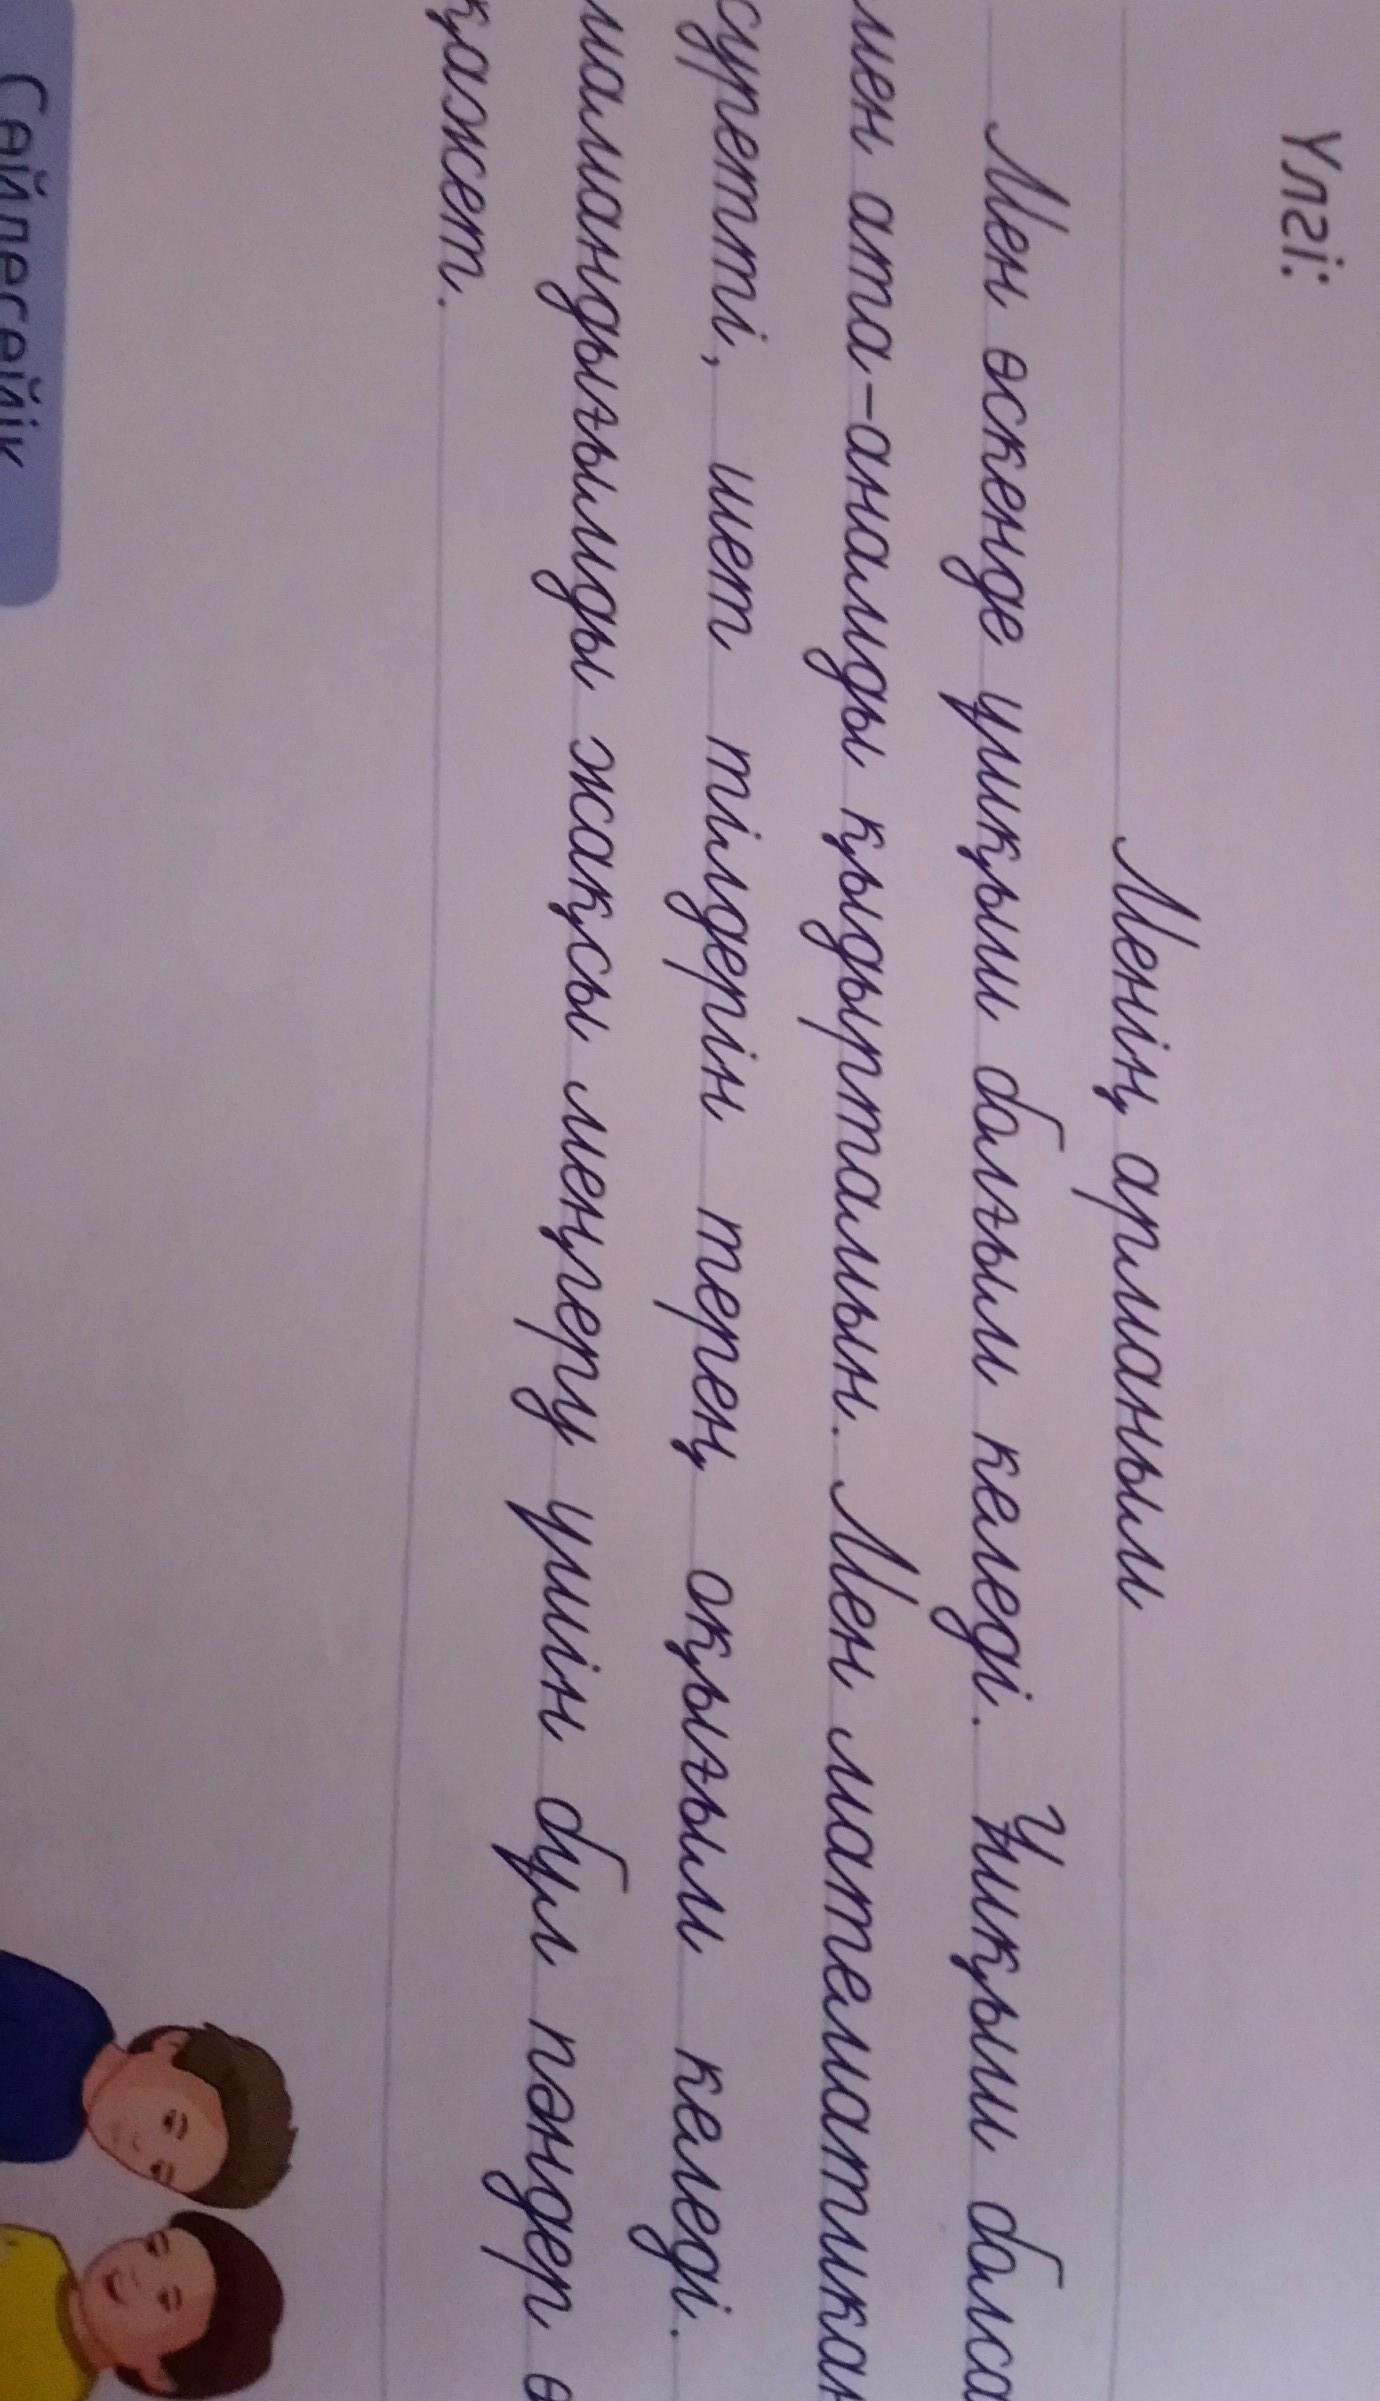 Үлгі:
Менің арманым
Мен өскенде ұшқыш болғым келеді. Ұшқыш болса
мен ата-анамды қыдыртамын. Мен математикан
суретті, шет тілдерін терең оқығым келеді.
мамандығымды жақсы меңгеру үшін бұл пәндер ө
қажет.
Сөйлесейік